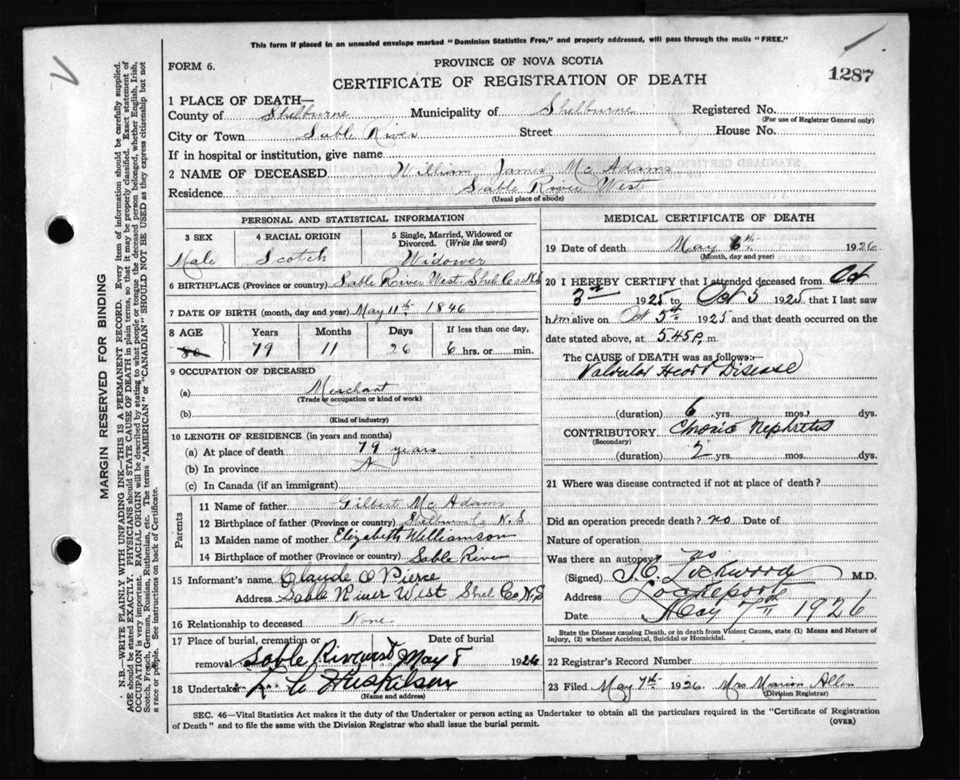 This form if placed in an unsealed envelope marked "Dominion Statistics Free," and properly addressed, will pass through the mails "FREE."
FORM 6.
PROVINCE OF NOVA SCOTIA
CERTIFICATE OF REGISTRATION OF DEATH
1287
1 PLACE OF DEATH—
County of Shelburne Municipality of Shelburne Registered No.
(For use of Registrar General only)
City or Town Sable River Street House No.
If in hospital or institution, give name
2 NAME OF DECEASED William James Mc Adams
Residence Sable River West
(Usual place of abode)
PERSONAL AND STATISTICAL INFORMATION
3 SEX
Male
4 RACIAL ORIGIN
Scotch
5 Single, Married, Widowed or Divorced. (Write the word)
Widower
6 BIRTHPLACE (Province or country) Sable River West Shel Co N.S
7 DATE OF BIRTH (month, day and year) May 11th 1846
8 AGE Years Months Days If less than one day,
80 79 11 26 6 hrs. or min.
9 OCCUPATION OF DECEASED
(a) Merchant
(Trade or occupation or kind of work)
(b)
(Kind of industry)
10 LENGTH OF RESIDENCE (in years and months)
(a) At place of death 79 years
(b) In province
(c) In Canada (if an immigrant)
Parents
11 Name of father Gilbert Mc Adams
12 Birthplace of father (Province or country) N.S
13 Maiden name of mother Elizabeth Williamson
14 Birthplace of mother (Province or country) Sable River
15 Informant's name Claude O Pierce
Address Sable River West Shel Co N.S
16 Relationship to deceased None
17 Place of burial, cremation or removal Date of burial
Sable River West May 8 1926
18 Undertaker L C Huskilson
(Name and address)
MEDICAL CERTIFICATE OF DEATH
19 Date of death May 6th 1926
(Month, day and year)
20 I HEREBY CERTIFY that I attended deceased from Oct
3rd 1925 to Oct 5 1925 that I last saw
him alive on Oct 5th 1925 and that death occurred on
date stated above, at 5.45 P. m.
The CAUSE OF DEATH was as follows:—
Valvular Heart Disease
(duration) 6 yrs. mos. dys.
CONTRIBUTORY Chronic Nephritis
(Secondary)
(duration) 2 yrs. mos. dys.
21 Where was disease contracted if not at place of death?
Did an operation precede death? no Date of
Nature of operation
Was there an autopsy? no
(Signed) Lockwood M.D.
Address Lockeporte
Date May 7th 1926
State the Disease causing Death, or in death from Violent Causes, state (1) Means and Nature of
Injury, (2) whether Accidental, Suicidal or Homicidal.
22 Registrar's Record Number
23 Filed May 7th 1926. Mrs Marion Allen
(Division Registrar)
SEC. 46—Vital Statistics Act makes it the duty of the Undertaker or person acting as Undertaker to obtain all the particulars required in the "Certificate of Registration
of Death" and to file the same with the Division Registrar who shall issue the burial permit.
(OVER)
MARGIN RESERVED FOR BINDING
N.B.—WRITE PLAINLY WITH UNFADING INK—THIS IS A PERMANENT RECORD. Every item of information should be carefully supplied.
AGE should be stated EXACTLY. PHYSICIANS should STATE CAUSE OF DEATH in plain terms, so that it may be properly classified. Exact statement of
OCCUPATION is very important. RACIAL ORIGIN will be described by stating to what people or tongue the deceased person belonged, whether English, Irish,
Scotch, French, German, Russian, Ruthenian, etc. The terms "AMERICAN" or "CANADIAN" SHOULD NOT BE USED as they express citizenship but not
a race or people. See instructions on back of Certificate.